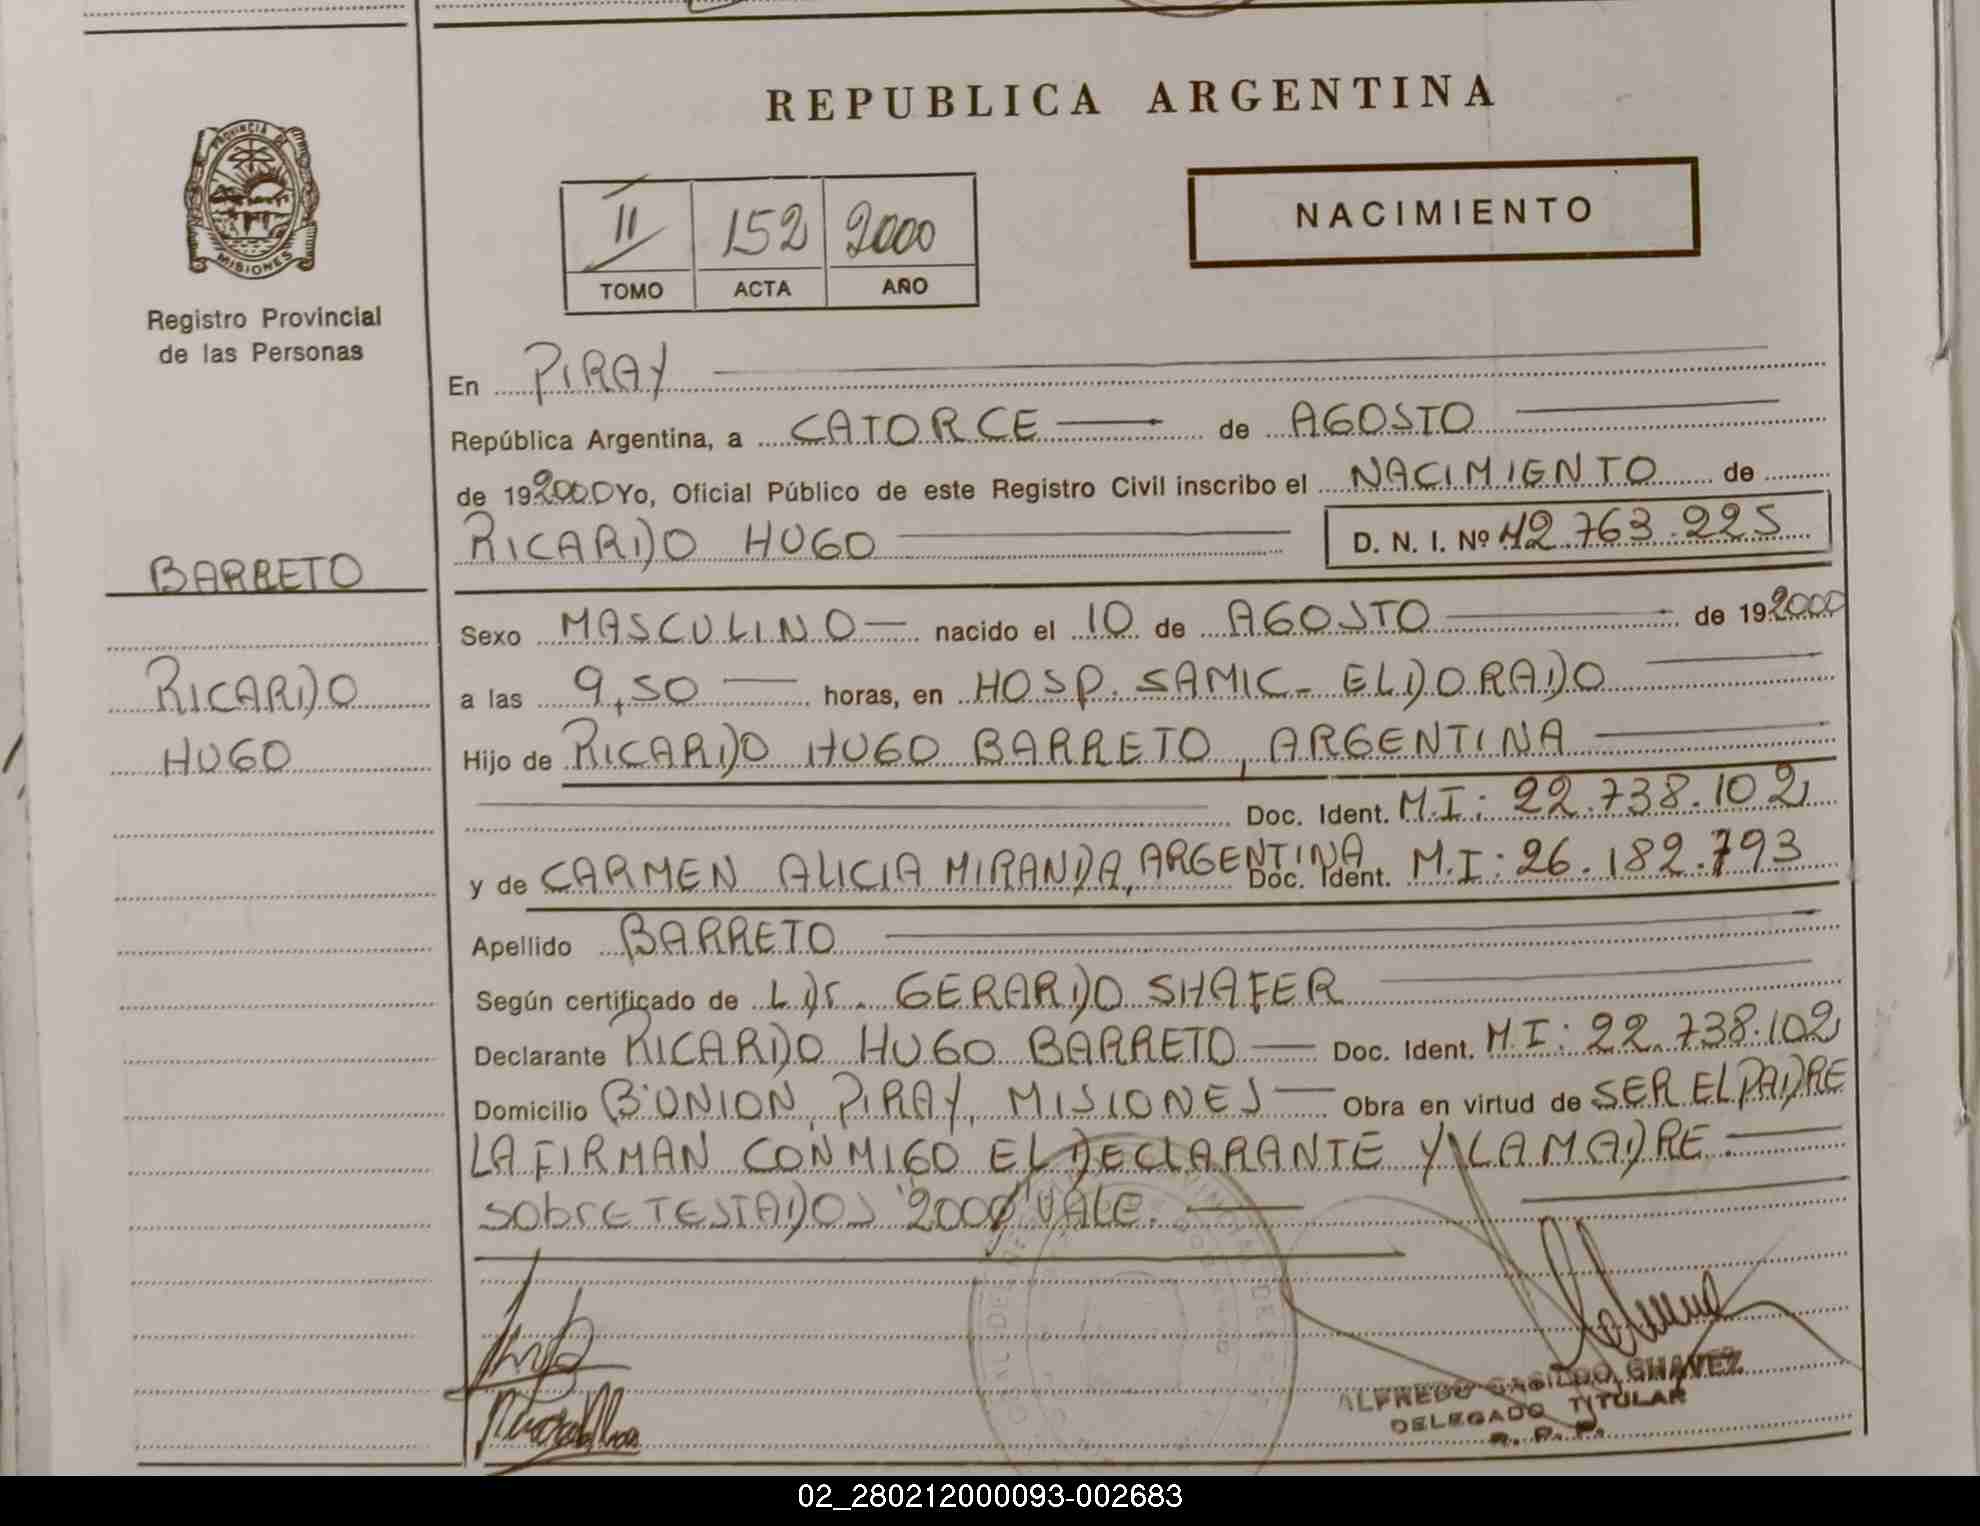 REPUBLICA ARGENTINA
PROVINCIA DE
MISIONES
Registro Provincial
de las Personas
II 152 2000
TOMO ACTA AÑO
NACIMIENTO
En PIRAY
República Argentina, a CATORCE de AGOSTO
de 19 2000 Yo, Oficial Público de este Registro Civil inscribo el NACIMIENTO de
RICARDO HUGO D. N. I. Nº 42.763.225
BARRETO
RICARDO
HUGO
Sexo MASCULINO nacido el 10 de AGOSTO de 19 2000
a las 9,50 horas, en HOSP. SAMIC- ELDORADO
Hijo de RICARDO HUGO BARRETO, ARGENTINA
Doc. Ident. M.I: 22.738.102
y de CARMEN ALICIA MIRANDA, ARGENTINA Doc. Ident. M.I: 26.182.793
Apellido BARRETO
Según certificado de L Dr. GERARDO SHAFER
Declarante RICARDO HUGO BARRETO Doc. Ident. M.I: 22.738.102
Domicilio B·UNION, PIRAY, MISIONES Obra en virtud de SER EL PADRE
LA FIRMAN CONMIGO EL DECLARANTE Y LA MADRE.
SobrE TESTADOS "2000" VALE.
ALFREDO CASILDO CHAVEZ
DELEGADO TITULAR
R. P. P.
02_280212000093-002683